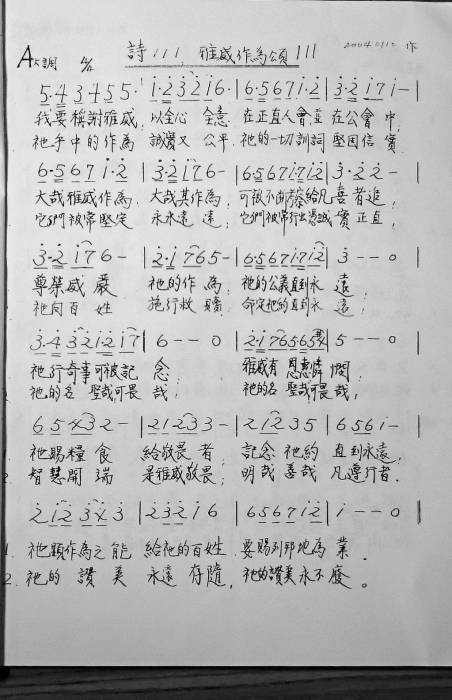 A大調 4/4 詩111 雅威作為頌111 作
5·4 3 4 5 5· | 1·2 3 2 1 6· | 6·5 6 7 1·2 | 3·2 1 7 1 — |
我要稱謝雅威, 以全心 全意 在正直人會並 在公會 中,
祂手中的作為 誠實又 公平, 祂的一切訓詞 堅固信 實
6·5 6 7 1·2 | 3·2 1 7 6 — | 6·5 6 7 1 7 1 2 | 3·2 2 — |
大哉雅威作為, 大哉其作為, 喜者進,
它們被常堅定 永永遠 遠, 它們被常行出憑誠 實正直,
3·2 1 7 6 — | 2·1 7 6 5 — | 6·5 6 7 1 7 1 2 | 3 — — 0 |
尊榮威 嚴 祂的作 為, 祂的公義直到永 遠;
祂向百 姓 施行救 贖, 命定祂約直到永 遠;
3·4 3 2 1 2 1 7 | 6 — — 0 | 2·1 7 6 5 6 5 | 5 — — 0 |
祂行奇事可被記 念; 雅威有 恩惠憐 憫,
祂的名 聖哉可畏 哉, 祂的名 聖哉可畏 哉,
6 5 3 2 — | 2 1 2 3 3 — | 2 1 2 3 5 | 6 5 6 1 — |
祂賜糧 食 給敬畏 者; 記念 祂約 直到永遠,
2. 智慧開 端 是雅威敬畏; 明哉 善哉 凡遵行者.
2 1 2 3 3 | 2·3 2 1 6 | 6 5 6 7 1 2 | 1 — — 0 ||
1. 祂顯作為之 能 給祂的百姓 要賜列邦地為 業.
2. 祂的 讚 美 永遠 存隨, 祂的讚美永不廢。